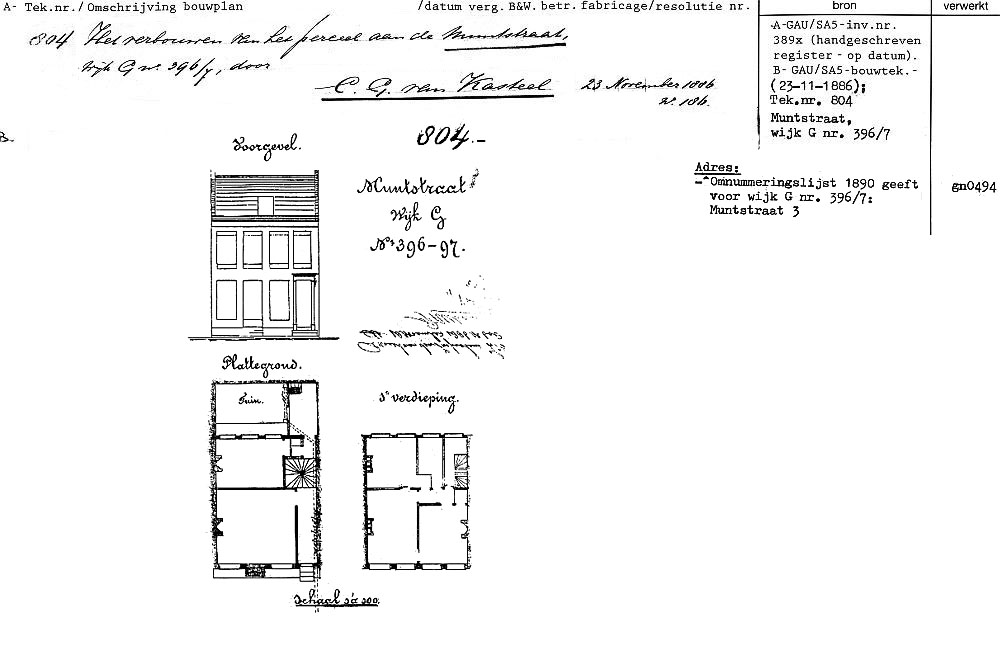 A- Tek.nr./Omschrijving bouwplan /datum verg. B&W. betr. fabricage/resolutie nr. bron verwerkt
804 Het verbouwen van het perceel aan de Muntstraat,
Wijk G no. 396/7, door
C. G. van Kasteel 23 November 1886
no. 186.
A-GAU/SA5-inv.nr.
389x (handgeschreven
register - op datum).
B- GAU/SA5-bouwtek.-
(23-11-1886);
Tek.nr. 804
Muntstraat,
wijk G nr. 396/7
B.
804.-
Voorgevel.
Muntstraat
Wijk G
Nos 396-97.
Adres:
-Omnummeringslijst 1890 geeft
voor wijk G nr. 396/7:
Muntstraat 3
gn0494
Plattegrond.
Tuin.
1e verdieping.
Schaal 1 à 100.